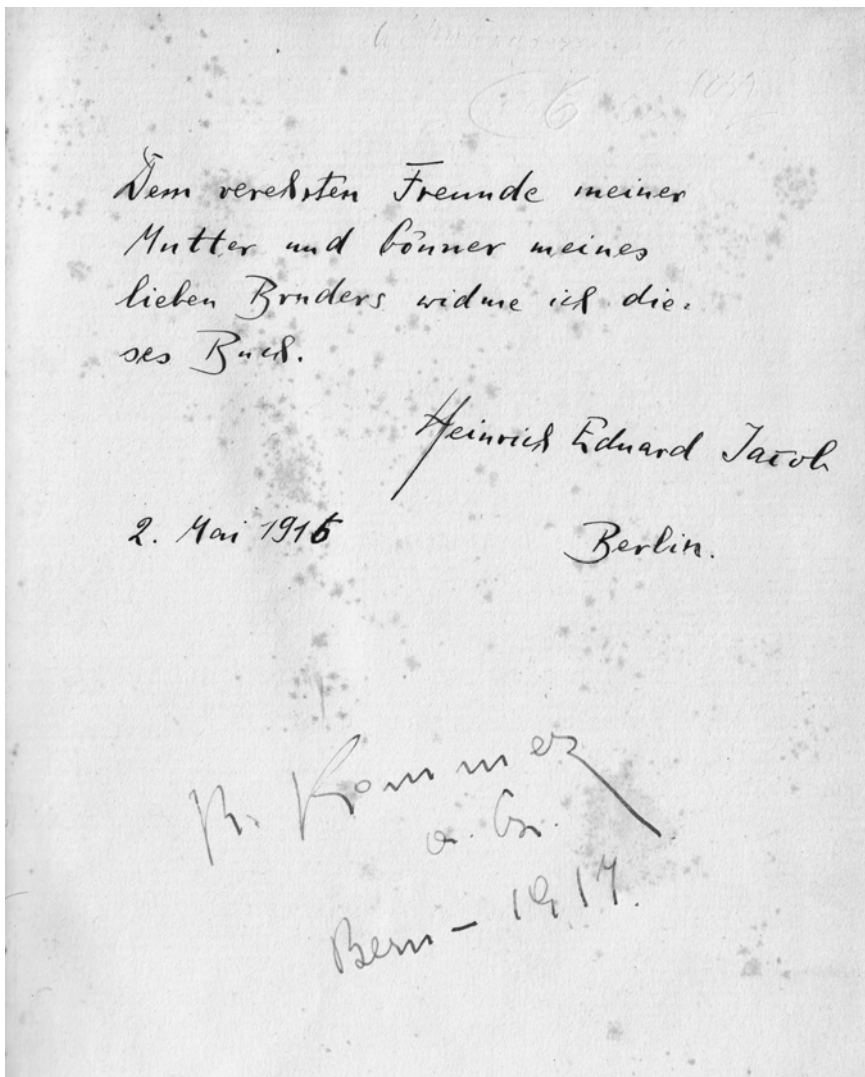 Dem verehrten Freunde meiner
Mutter und Gönner meines
lieben Bruders widme ich die-
ses Buch.
Heinrich Eduard Jacob
2. Mai 1915
Berlin.
R. Kommer
a. Cz.
Bern – 1917.